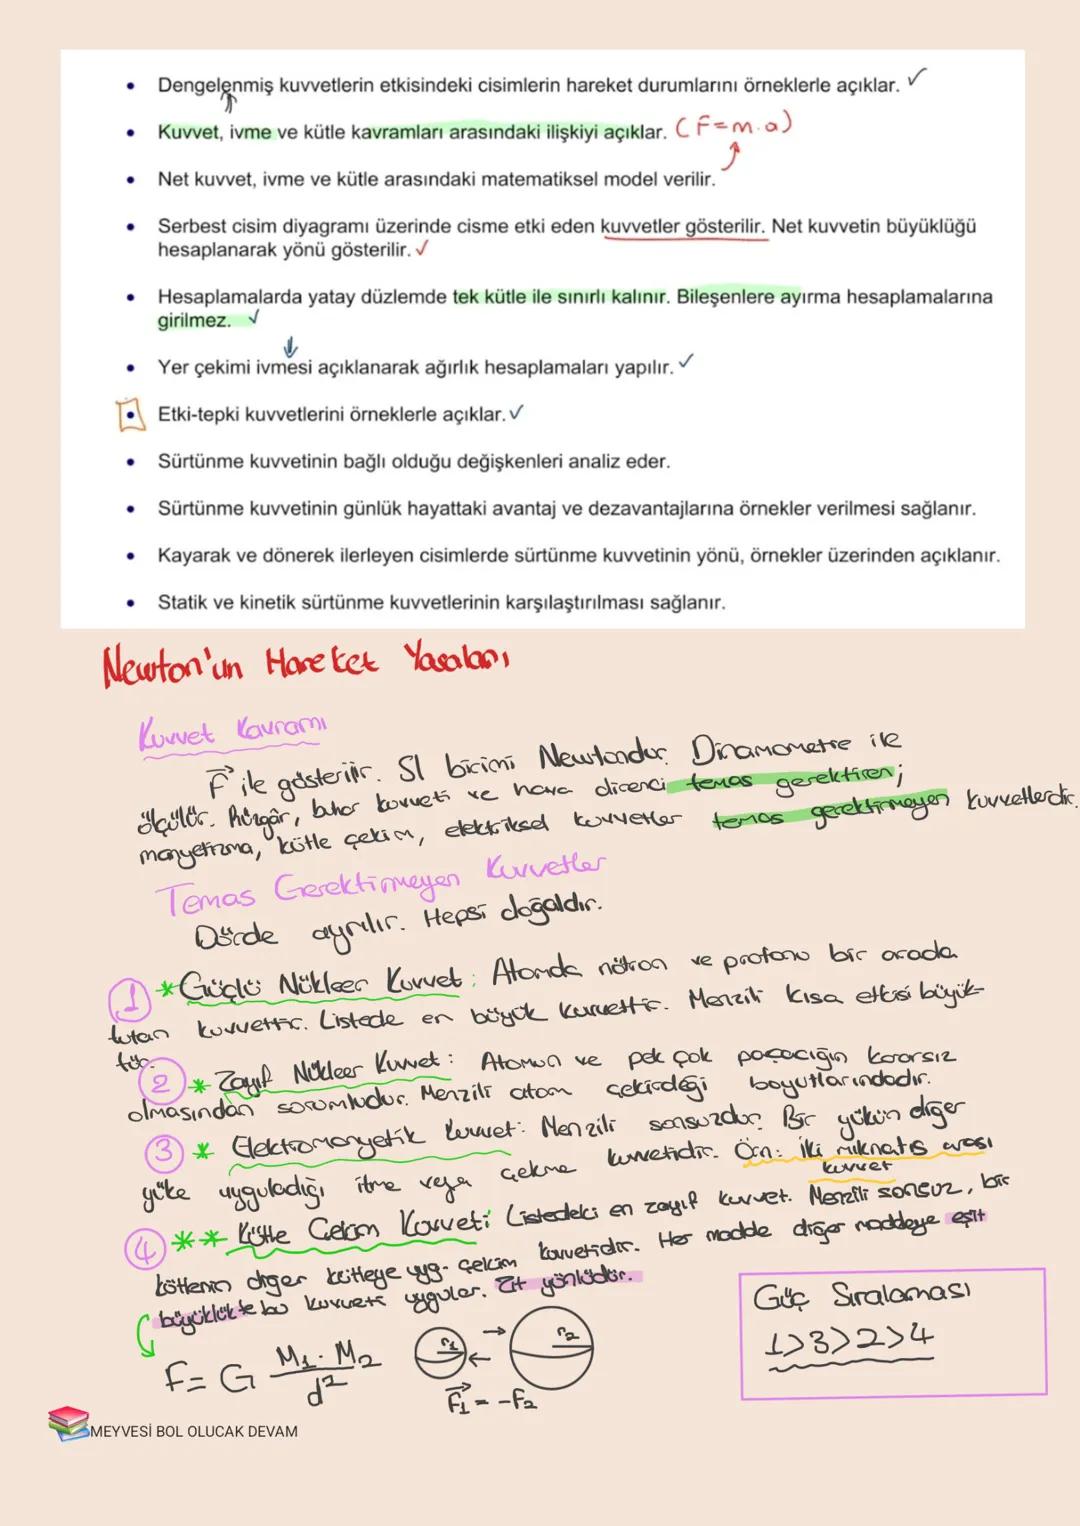 • Dengelenmiş kuvvetlerin etkisindeki cisimlerin hareket durumlarını örneklerle açıklar. ✓
• Kuvvet, ivme ve kütle kavramları arasındaki ilişkiyi açıklar. (F=m.a)
• Net kuvvet, ivme ve kütle arasındaki matematiksel model verilir.
• Serbest cisim diyagramı üzerinde cisme etki eden kuvvetler gösterilir. Net kuvvetin büyüklüğü
hesaplanarak yönü gösterilir. ✓
• Hesaplamalarda yatay düzlemde tek kütle ile sınırlı kalınır. Bileşenlere ayırma hesaplamalarına
girilmez. ✓
• Yer çekimi ivmesi açıklanarak ağırlık hesaplamaları yapılır. ✓
• Etki-tepki kuvvetlerini örneklerle açıklar. ✓
• Sürtünme kuvvetinin bağlı olduğu değişkenleri analiz eder.
• Sürtünme kuvvetinin günlük hayattaki avantaj ve dezavantajlarına örnekler verilmesi sağlanır.
• Kayarak ve dönerek ilerleyen cisimlerde sürtünme kuvvetinin yönü, örnekler üzerinden açıklanır.
• Statik ve kinetik sürtünme kuvvetlerinin karşılaştırılması sağlanır.
Newton'un Hareket Yasaları
Kuvvet Kavramı
F ile gösterilir. SI birimi Newtondur. Dinamometre ile
ölçülür. Rüzgâr, buhar kuvveti ve hava direnci temas gerektiren;
manyetizma, kütle çekim, elektriksel kuvvetler temas gerektirmeyen kuvvetlerdir.
Temas Gerektirmeyen Kuvvetler
Dörde ayrılır. Hepsi doğaldır.
1 * Güçlü Nükleer Kuvvet: Atomda nötron ve protonu bir arada
tutan kuvvettir. Listede en büyük kuvvettir. Menzili kısa etkisi büyük-
tür.
2 * Zayıf Nükleer Kuvvet: Atomun ve pek çok parçacığın kararsız
olmasından sorumludur. Menzili atom çekirdeği boyutlarındadır.
3 * Elektromanyetik kuvvet: Menzili sonsuzdur. Bir yükün diğer
yüke uyguladığı itme veya çekme kuvvetidir. Örn: İki mıknatıs arası
kuvvet
4 ** Kütle Çekim Kuvveti: Listedeki en zayıf kuvvet. Menzili sonsuz, bir
kütlenin diğer kütleye uyg. çekim kuvvetidir. Her madde diğer maddeye eşit
büyüklükte bu kuvveti uygular. Zıt yönlüdür.
F = G M1 . M2 / d²
r1 r2
F1 = -F2
Güç Sıralaması
1>3>2>4
MEYVESİ BOL OLUCAK DEVAM